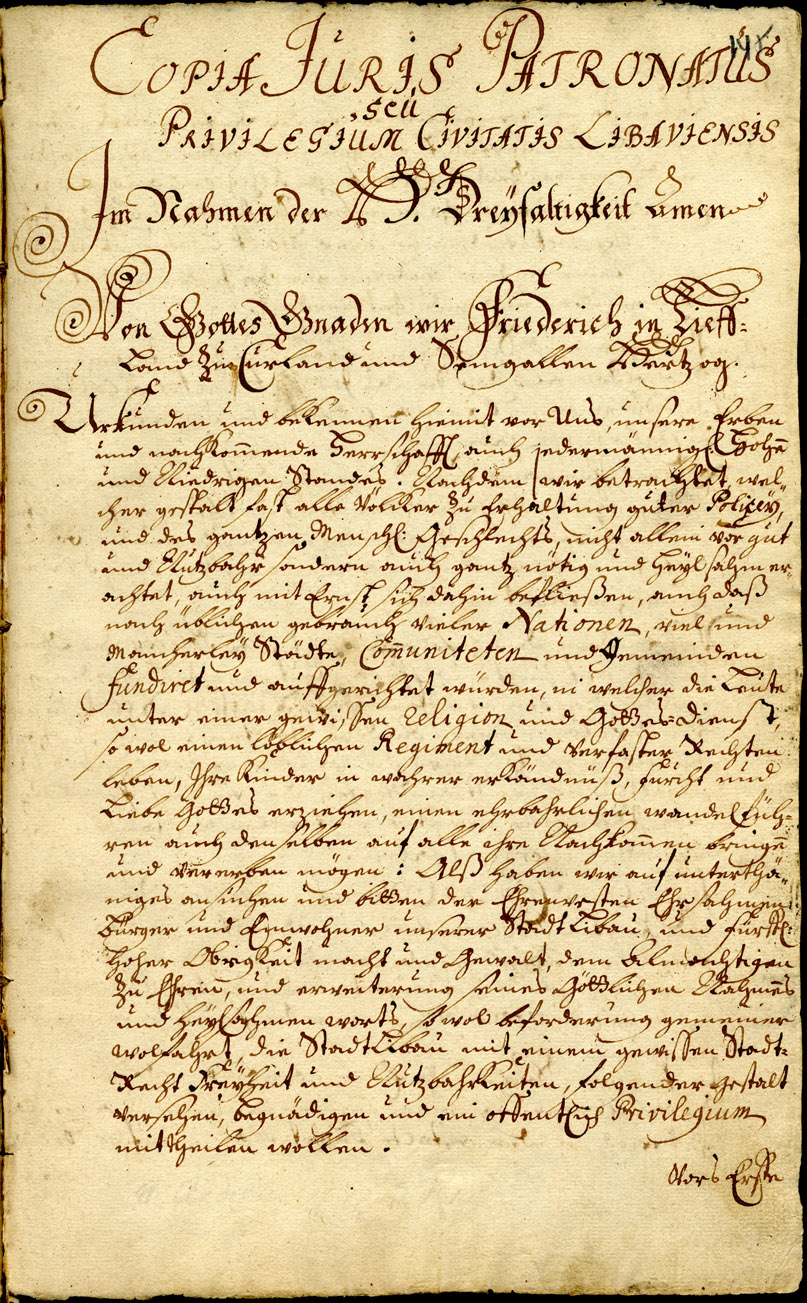 COPIA JURIS PATRONATUS
seu
PRIVILEGIUM CIVITATIS LIBAVIENSIS
Im Nahmen der H. Dreyfaltigkeit Amen
Von Gottes Gnaden wir Friederich in Lieff-
Land zu Curland und Semgallen Hertzog.
Urkunden und bekennen hiemit vor Uns, unsere Erben
und nachkom̄ende Herrschafft, auch jedermännigl. Hohen̄
und Niedrigen Standes. Nachdem wir betrachtet, wel-
cher gestalt fast alle Völcker zu Erhaltung guter Policey,
und des gantzen Menschl: Geschlechts, nicht allein vor gut
und Nutzbahr sondern auch gantz nötig und Heylsahm er-
achtet, auch mit Ernst sich dahin befließen, auch daß
nach üblichen gebrauch vieler Nationen, viel und
Mancherley Städte, Com̄uniteten und Gemeinden
fundiret und auffgerichtet würden, in welcher die Leute
unter einer gewissen Religion und Gottes-Dienst,
so wol einen löblichen Regiment und verfaster Rechten
leben, Ihre Kinder in wahrer erkändnüß, furcht und
Liebe Gottes erziehen, einen ehrbahrlichen wandel füh-
ren auch denselben auf alle ihre Nachkom̄en bringen̄
und vererben mögen: Alß haben wir auf unterthä-
niges ansuchen und bitten der Ehrenvesten Ehrsahmen
Bürger und Einwohner unserer Stadt Libau, und fürstl:
Hoher Obrigkeit macht und Gewalt, dem Almächtigen
zu Ehren, und erweiterung seines Göttlichen Nahmens
und Heylsahmen worts, so wol beforderung gemeiner
wolfahrt, die Stadt Libau mit einem gewissen Stadt-
Recht Freyheit und Nutzbahrkeiten, folgender gestalt
versehen, begnädigen und ein offentlich Privilegium
mittheilen wollen.
Vors Erste